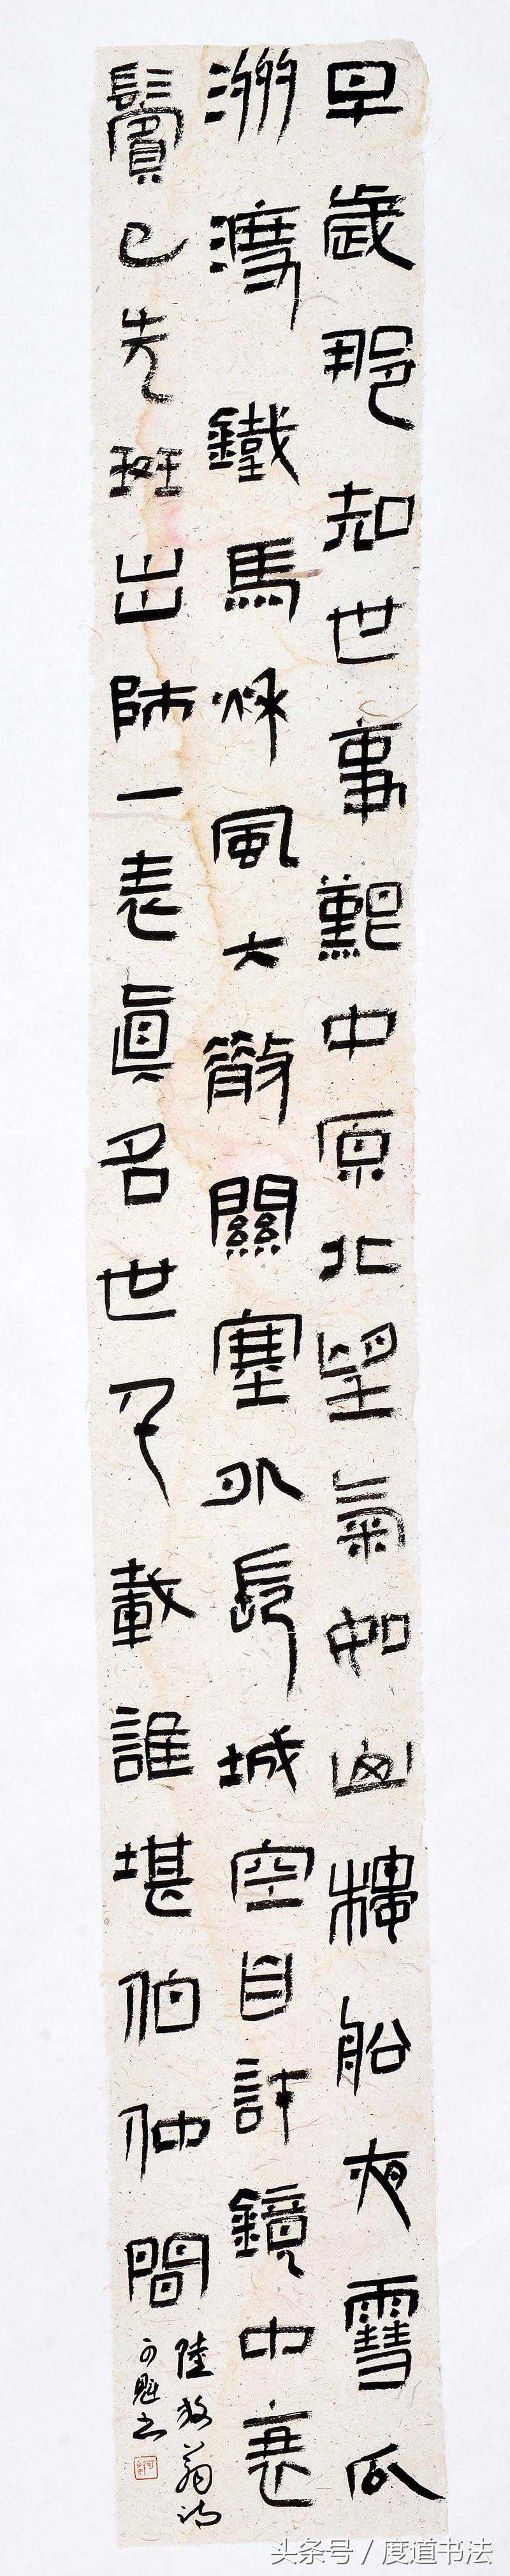 早歲那知世事艱中原北望氣如山樓船夜雪瓜
洲渡鐵馬秋風大散關塞上長城空自許鏡中衰
鬢已先斑出師一表真名世千載誰堪伯仲間
陸放翁詩
可魁書
头条号 / 度道书法